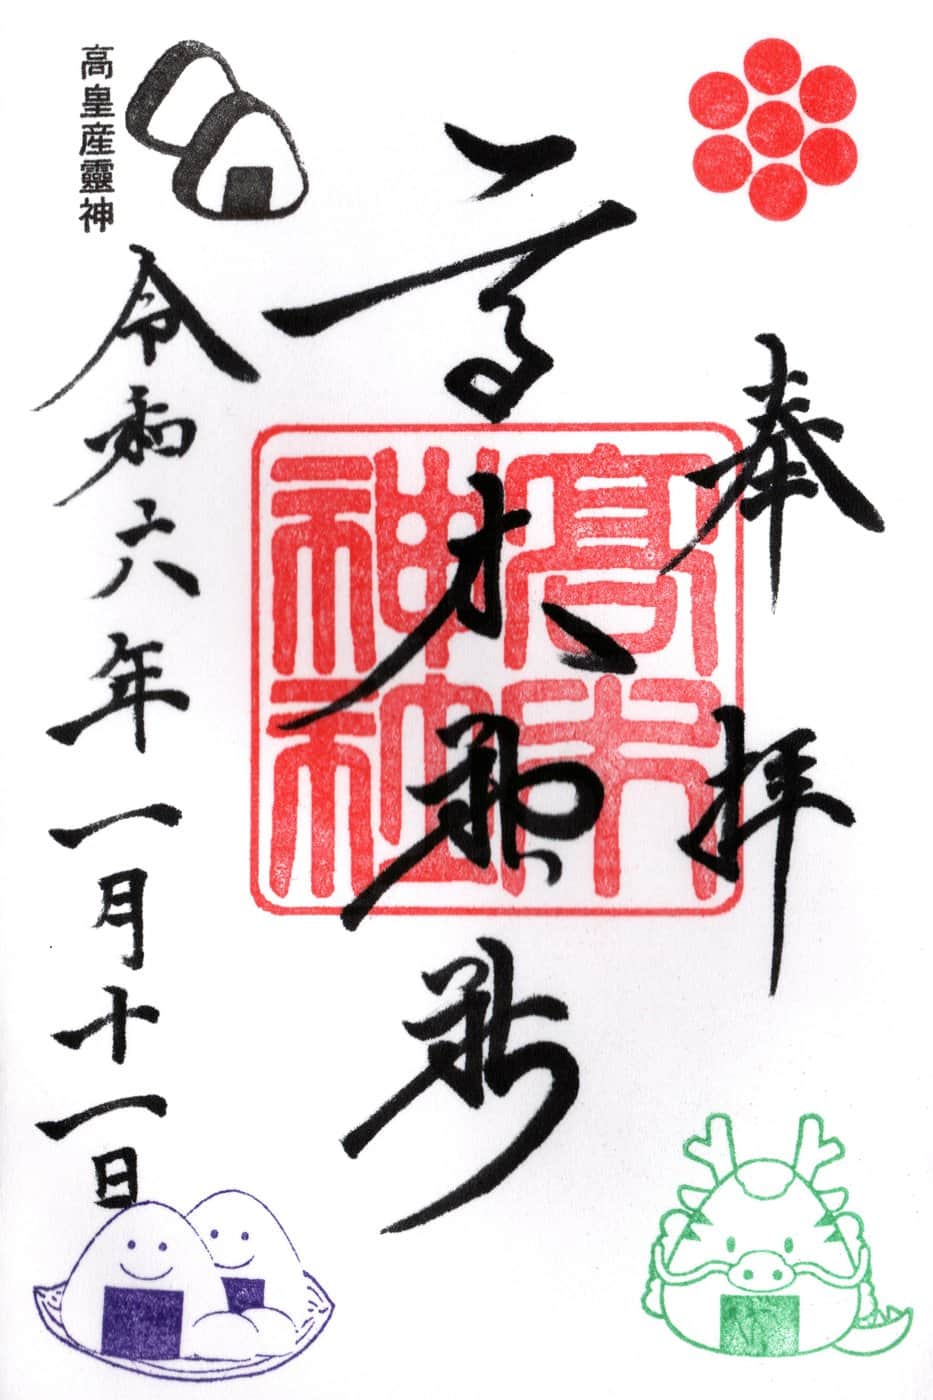 奉拝
高木神社
高木神社
令和六年一月十一日
高皇産靈神